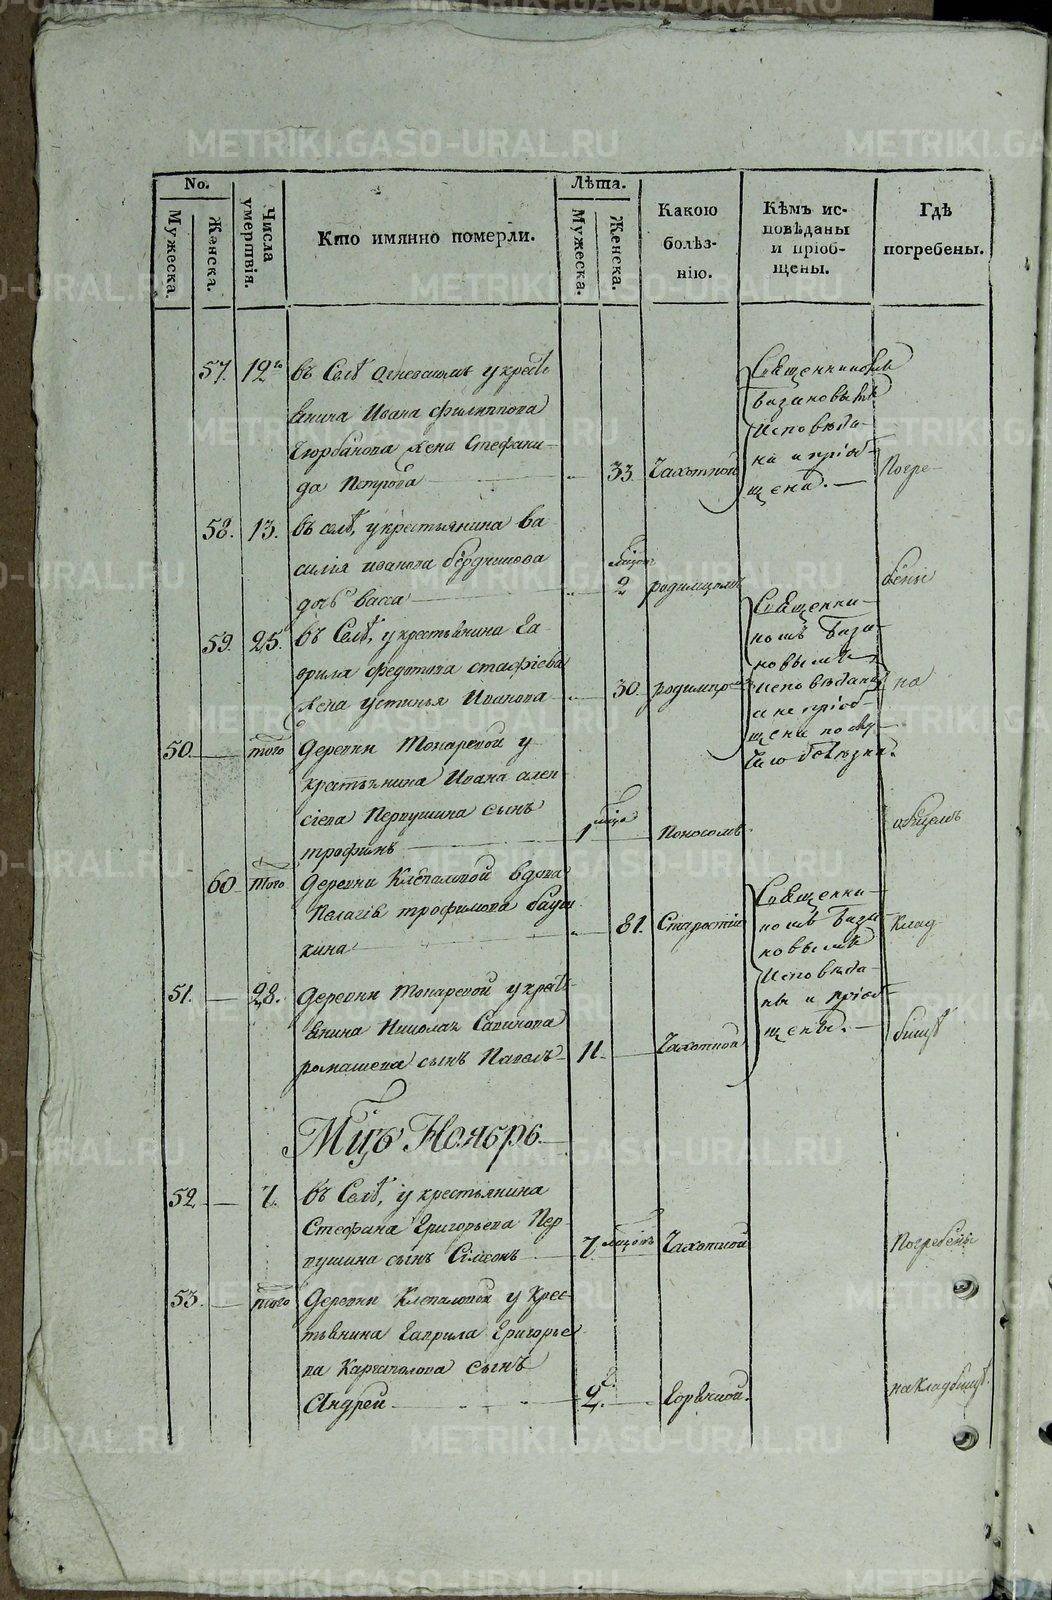 METRIKI.GASO-URAL.RU
No.
Мужеска.
Женска.
Числа умертвія.
Кто имянно померли.
Лѣта.
Мужеска.
Женска.
Какою болѣз-
нію.
Кѣмъ ис-
повѣданы
и пріоб-
щены.
Гдѣ
погребены.
57. 12го въ Селѣ Огневскомъ у кресть
янина Ивана Филиппова
жена Стефани-
да Петрова 33. Чахоткой
Священникомъ
Базановымъ
Исповѣда-
на и пріоб-
щена.
Погре-
58. 13. въ селѣ, у крестьянина Ва
силія Иванова Бердникова
дочь Васса 2 мѣсяц родимцемъ
бены
59. 25. въ Селѣ, у крестьянина Га-
врила Федотова
жена Устинья Иванова 30.
Священни-
комъ База-
новымъ
Исповѣдана
а не пріоб-
щена по слу-
чаю болѣзни.
на
50. того Деревни Токаревой у
крестьянина Ивана Алек-
сіева Первушина сынъ
Трофимъ 1 мѣсяца Поносомъ
общемъ
60 того Деревни Клепаловой вдова
Пелагія Трофимова
кина 81. Старостію
Священни-
комъ База
новымъ
Исповѣда-
ны и пріоб-
щены.
клад-
51. 28. Деревни Токаревой у кресть-
янина Николая Савинова
Ромашева сынъ Павелъ 11. Чахоткой
бищѣ
Мцъ Ноябрь.
52 7. въ Селѣ, у крестьянина
Стефана Григорьева Пер
вушина сынъ Сімеонъ 7 мѣсяцовъ Чахоткой
Погребены
53. того Деревни Клепаловой у Крес-
тьянина Гаврила Григорье
ва Каргаполова сынъ
Андрей 2. Горячкой.
на кладбищѣ.